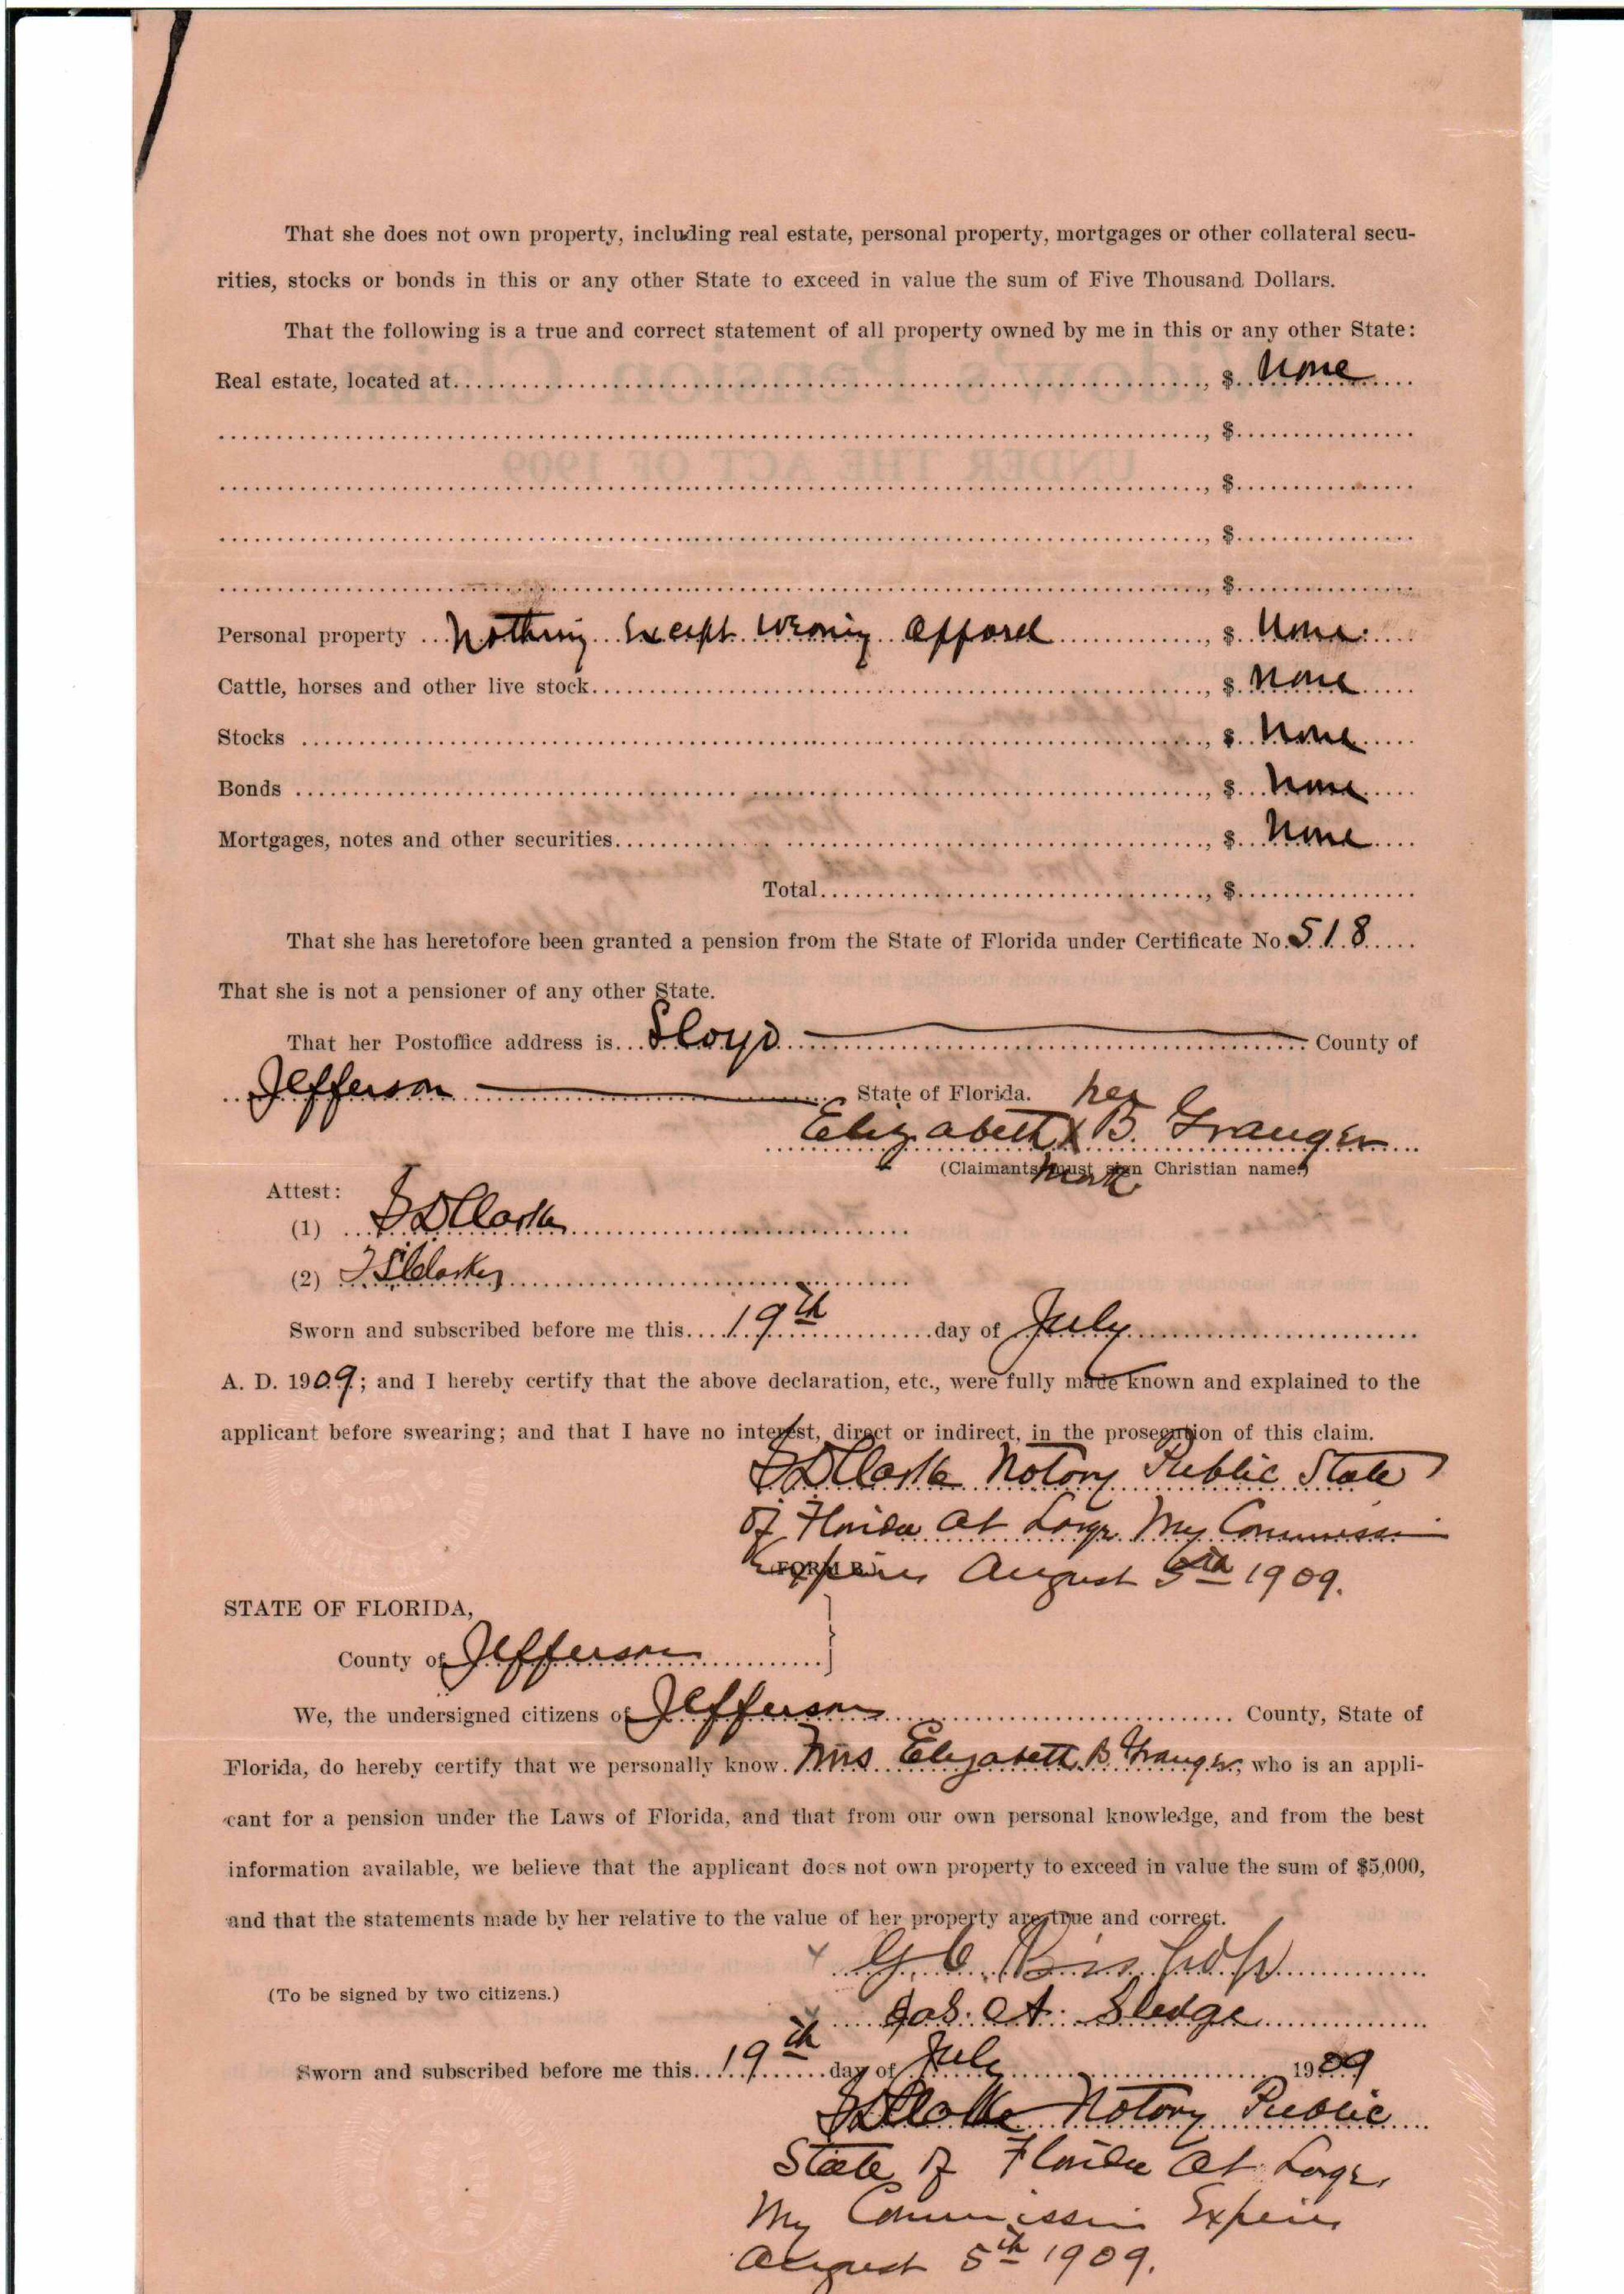 That she does not own property, including real estate, personal property, mortgages or other collateral secu-
rities, stocks or bonds in this or any other State to exceed in value the sum of Five Thousand Dollars.
That the following is a true and correct statement of all property owned by me in this or any other State:
Real estate, located at , $ None
, $
, $
, $
, $
Personal property Nothing Except Wering Apparel , $ None
Cattle, horses and other live stock , $ None
Stocks , $ None
Bonds , $ None
Mortgages, notes and other securities , $ None
Total , $
That she has heretofore been granted a pension from the State of Florida under Certificate No. 518
That she is not a pensioner of any other State.
That her Postoffice address is Lloyd County of
Jefferson State of Florida. her
Elizabeth X B. Granger
(Claimants must sign Christian name.)
mark
Attest:
(1) S D Clarke
(2)
Sworn and subscribed before me this 19th day of July
A. D. 1909; and I hereby certify that the above declaration, etc., were fully made known and explained to the
applicant before swearing; and that I have no interest, direct or indirect, in the prosecution of this claim.
S D Clarke Notory Public State
of Florida at Large My Commission
(FORM B.)
Expires August 5th 1909.
STATE OF FLORIDA,
County of Jefferson
We, the undersigned citizens of Jefferson County, State of
Florida, do hereby certify that we personally know Mrs Elizabeth B. Granger, who is an appli-
cant for a pension under the Laws of Florida, and that from our own personal knowledge, and from the best
information available, we believe that the applicant does not own property to exceed in value the sum of $5,000,
and that the statements made by her relative to the value of her property are true and correct.
x G. C. Bishop
(To be signed by two citizens.)
x Jas. A. Sledge
Sworn and subscribed before me this 19th day of July 1909
S D Clarke Notory Public
State of Florida at Large.
My Commission Expires
August 5th 1909.